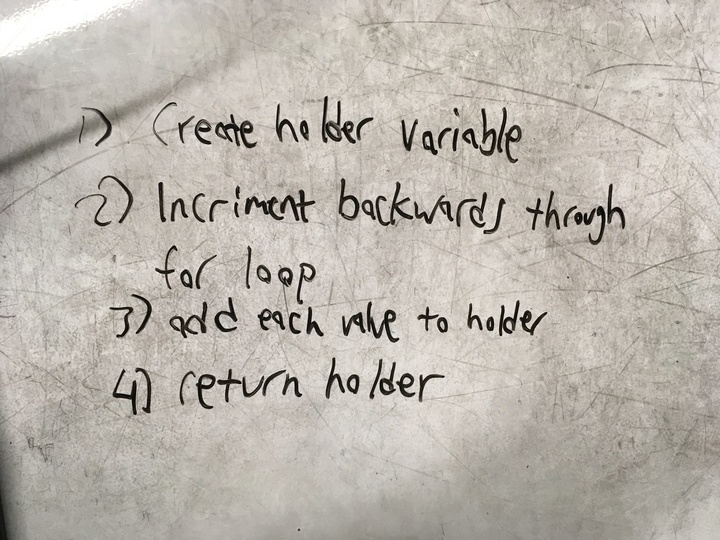 1) Create holder variable
2) Incriment backwards through
for loop
3) add each value to holder
4) return holder